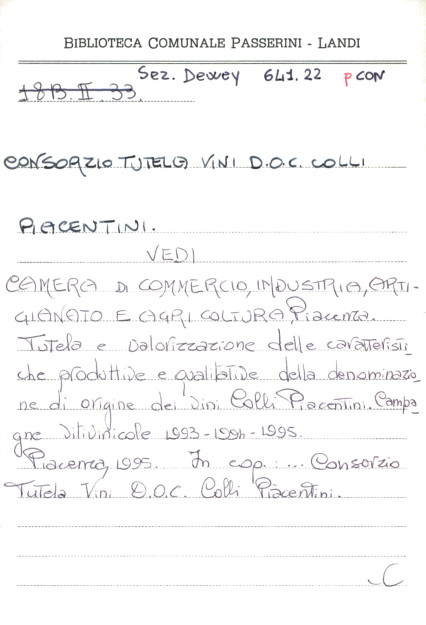 BIBLIOTECA COMUNALE PASSERINI - LANDI
Sez. Dewey 641.22 p CON
18B.II.33.
CONSORZIO TUTELA VINI D.O.C. COLLI
PIACENTINI.
VEDI
CAMERA DI COMMERCIO, INDUSTRIA, ARTI-
GIANATO E AGRICOLTURA, Piacenza.
Tutela e valorizzazione delle caratteristi_
che produttive e qualitative della denominazio_
ne di origine dei vini Colli Piacentini. Campa_
gne vitivinicole 1993-1994-1995.
Piacenza, 1995. In cop.: ... Consorzio
Tutela Vini D.O.C. Colli Piacentini.
C